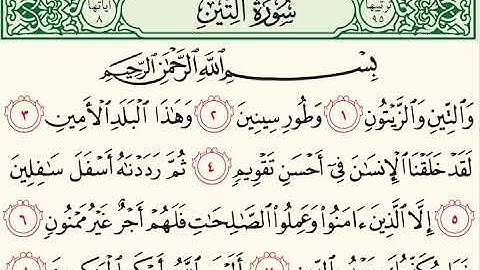 ترتيبها ٩٥ سورة التين آياتها ٨
بِسْمِ اللَّهِ الرَّحْمَٰنِ الرَّحِيمِ
وَالتِّينِ وَالزَّيْتُونِ ١ وَطُورِ سِينِينَ ٢ وَهَٰذَا الْبَلَدِ الْأَمِينِ ٣
لَقَدْ خَلَقْنَا الْإِنسَانَ فِي أَحْسَنِ تَقْوِيمٍ ٤ ثُمَّ رَدَدْنَاهُ أَسْفَلَ سَافِلِينَ
٥ إِلَّا الَّذِينَ ءَامَنُوا وَعَمِلُوا الصَّالِحَاتِ فَلَهُمْ أَجْرٌ غَيْرُ مَمْنُونٍ ٦